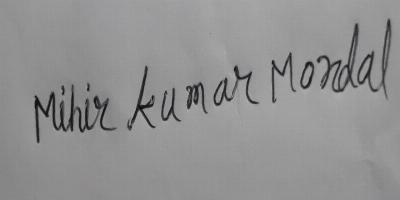 Mihir Kumar Mondal